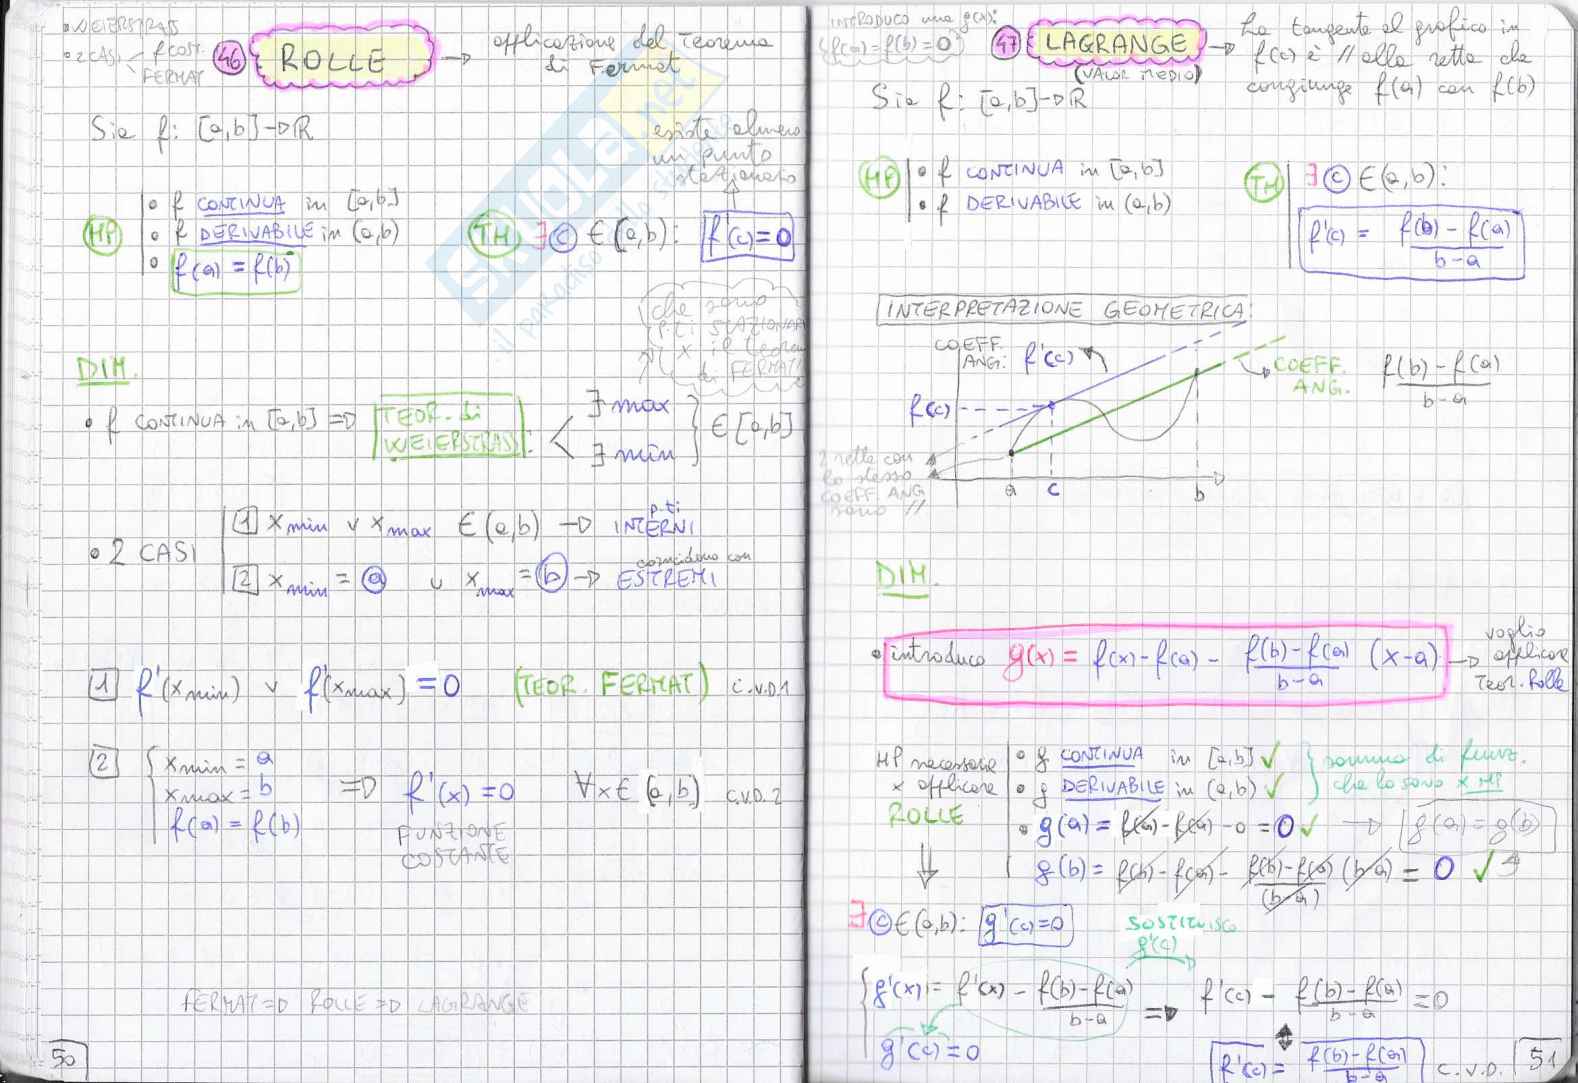 • WEIERSTRASS
• 2 CASI < f COST. FERMAT
46 ROLLE → applicazione del Teorema di Fermat
Sia f: [a,b] → ℝ
esiste almeno
un punto
stazionario
HP
• f CONTINUA in [a,b]
• f DERIVABILE in (a,b)
• f(a) = f(b)
TH ∃ c ∈ (a,b): f'(c) = 0
che sono
p.ti STAZIONARI
x il teorema
di FERMAT
DIM.
• f CONTINUA in [a,b] ⇒ TEOR. di WEIERSTRASS: < ∃ max ∃ min } ∈ [a,b]
• 2 CASI
1 x min ∨ x max ∈ (a,b) → p.ti INTERNI
2 x min = a ∨ x max = b → coincidono con ESTREMI
1 f'(x min) ∨ f'(x max) = 0 (TEOR. FERMAT) C.V.D.1
2 { x min = a
x max = b ⇒ f'(x) = 0 ∀x ∈ (a,b) C.V.D.2
f(a) = f(b)
FUNZIONE
COSTANTE
FERMAT ⇒ ROLLE ⇒ LAGRANGE
50
SKUOLA.net
il paradiso dello studente
INTRODUCO una g(x):
(f(a) = f(b) = 0)
47 LAGRANGE →
(VALOR MEDIO)
La tangente al grafico in
f(c) è // alla retta che
congiunge f(a) con f(b)
Sia f: [a,b] → ℝ
HP
• f CONTINUA in [a,b]
• f DERIVABILE in (a,b)
TH ∃ c ∈ (a,b):
f'(c) = f(b) - f(a) / b-a
INTERPRETAZIONE GEOMETRICA:
COEFF. ANG: f'(c)
COEFF. ANG. f(b) - f(a) / b-a
f(c)
2 rette con
lo stesso
COEFF. ANG
sono //
a c b
DIM.
• introduco g(x) = f(x) - f(a) - f(b) - f(a) / b-a (x-a) →
voglio
applicare
Teor. Rolle
HP necessarie
x applicare
ROLLE
• g CONTINUA in [a,b] ✓
• g DERIVABILE in (a,b) ✓
somma di funz.
che lo sono x HP
• g(a) = f(a) - f(a) - 0 = 0 ✓ → g(a) = g(b)
g(b) = f(b) - f(a) - f(b) - f(a) / (b-a) (b-a) = 0 ✓
⇓
∃ c ∈ (a,b): g'(c) = 0
SOSTITUISCO
g'(c)
{ g'(x) = f'(x) - f(b) - f(a) / b-a ⇒ f'(c) - f(b) - f(a) / b-a = 0
g'(c) = 0
f'(c) = f(b) - f(a) / b-a C.V.D.
51